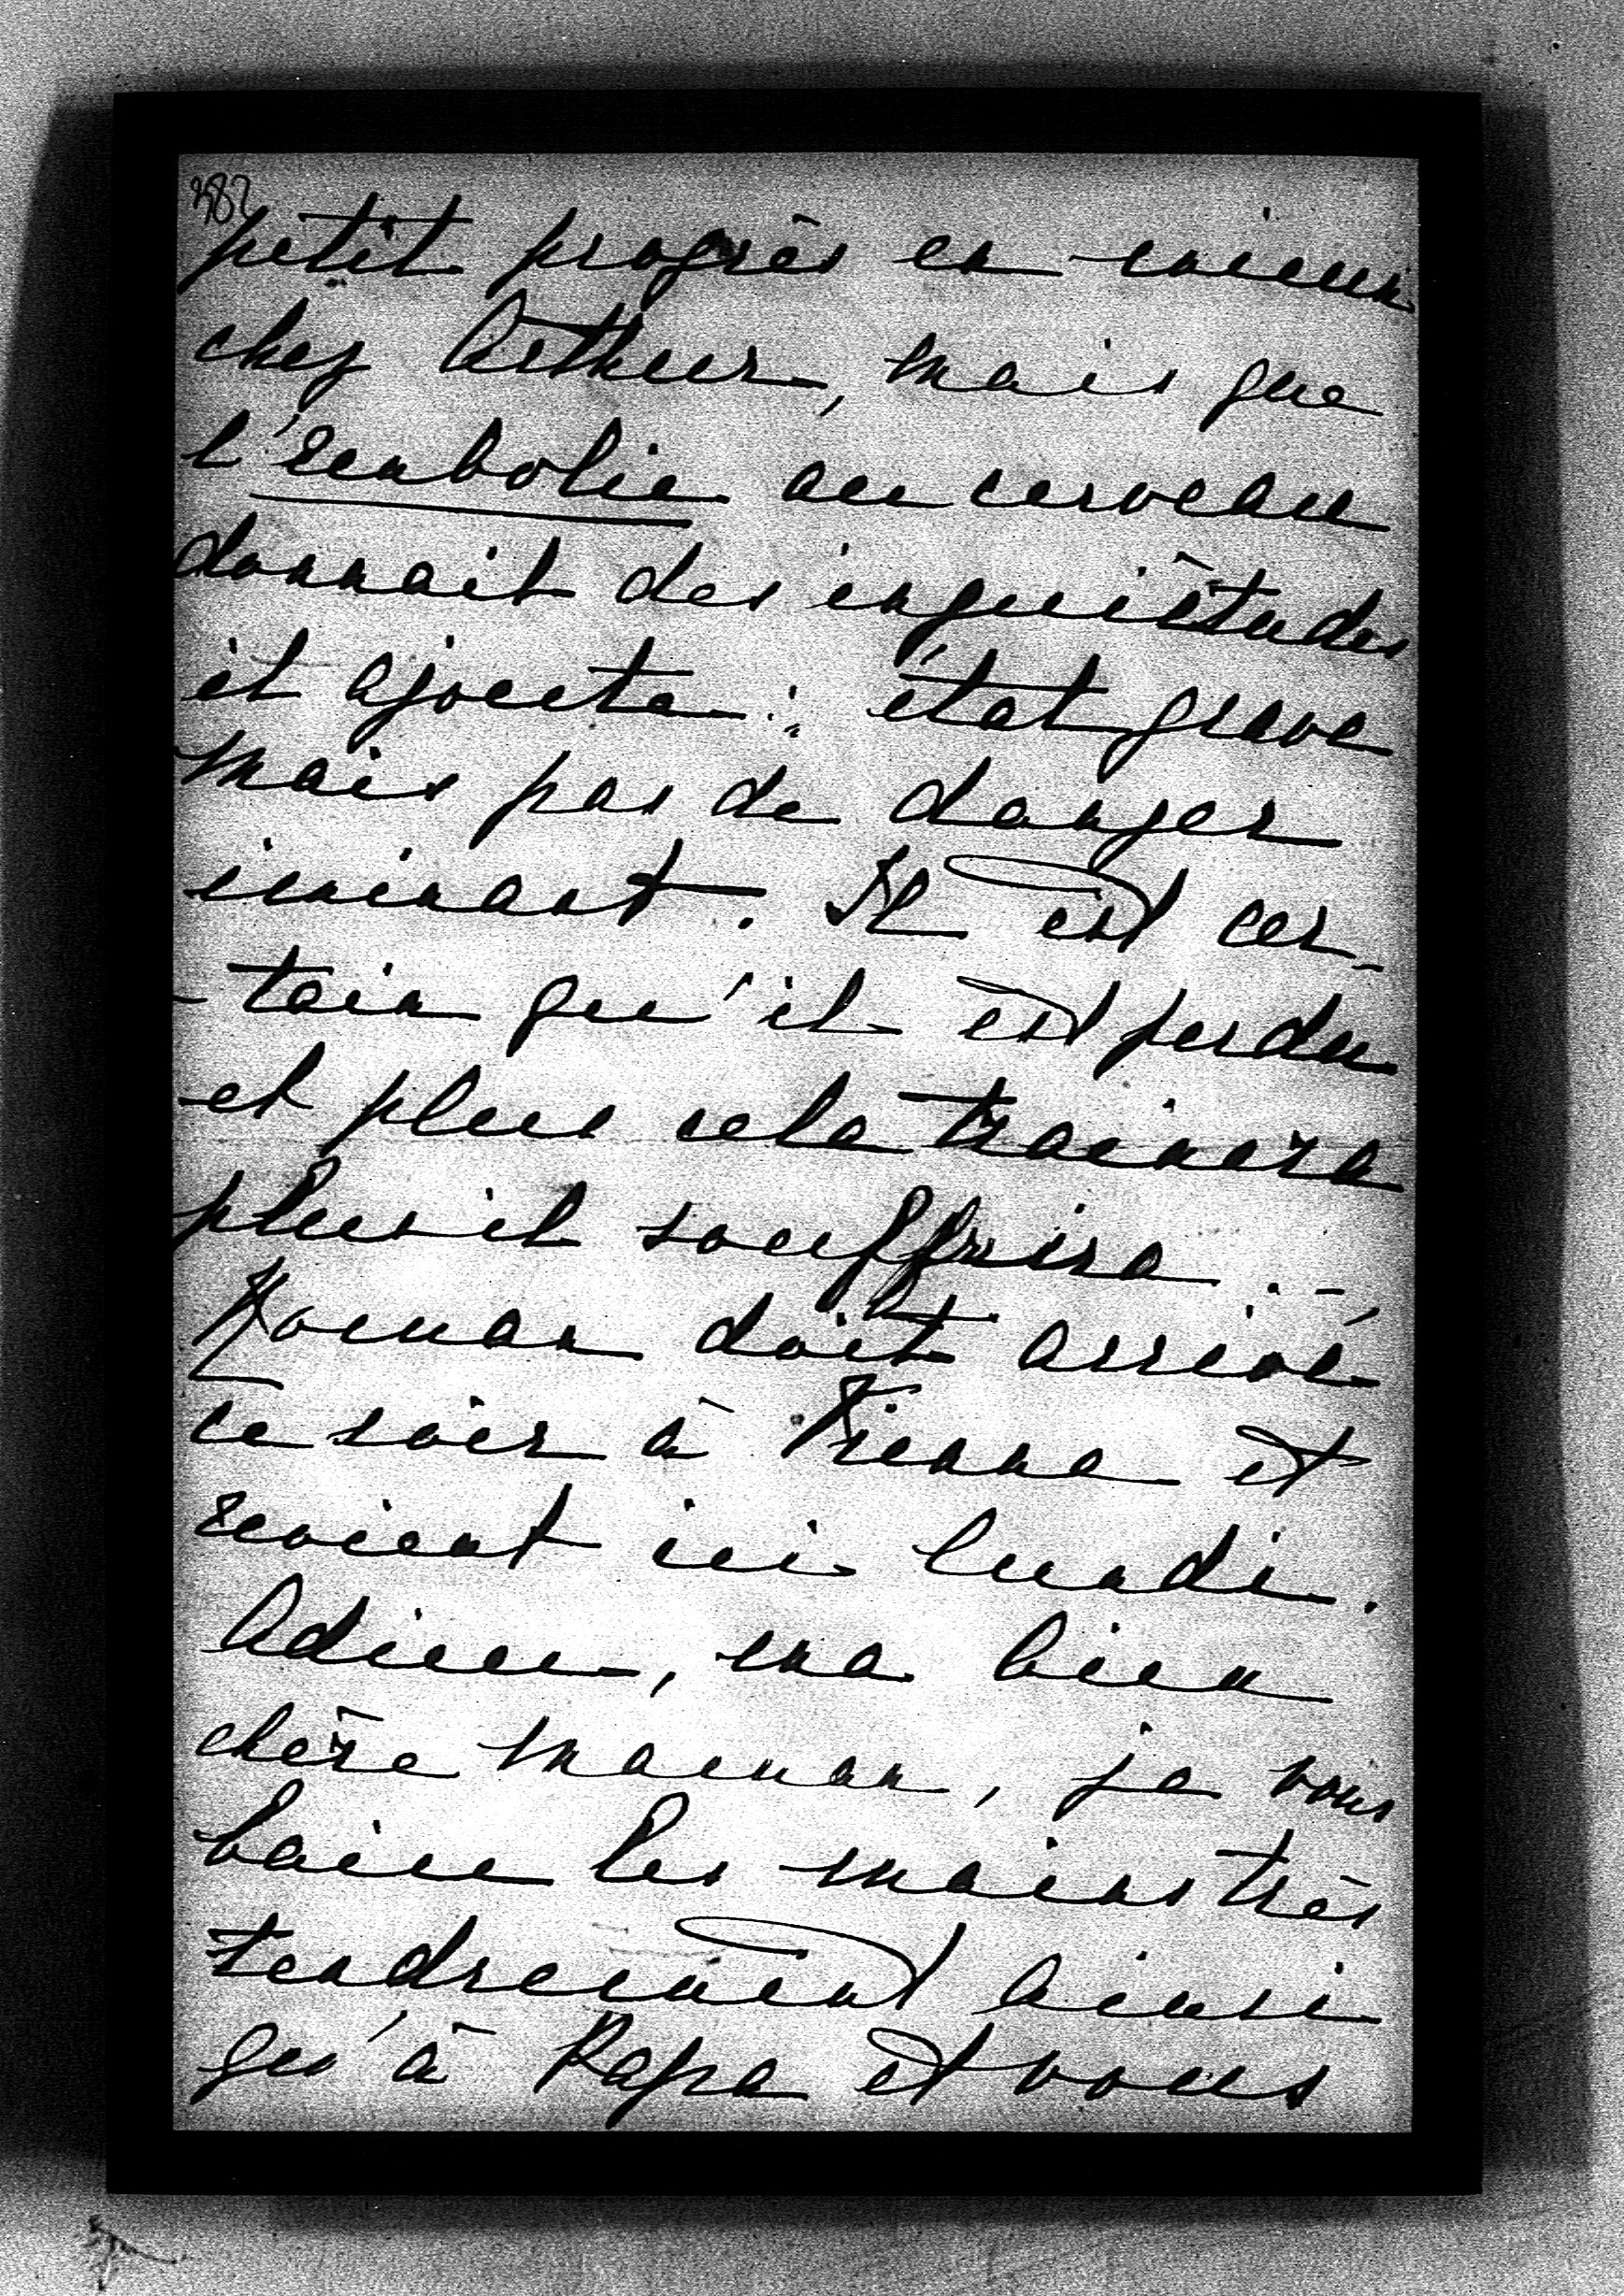 382
petit progrès en mieux
chez Arthur, mais que
l'Embolie au cerveau
donnait des inquiétudes
et ajoute : état grave
mais pas de danger
iminant. Il est cer-
-tain qu'il est perdu
et plus cela trainera
plus il souffrira. -,
Roman doit arrivé
ce soir à Vienne et
revient ici lundi.
Adieu, ma bien
chère Maman, je vous
baise les mains très
tendrement ainsi
qu'à Papa et vous